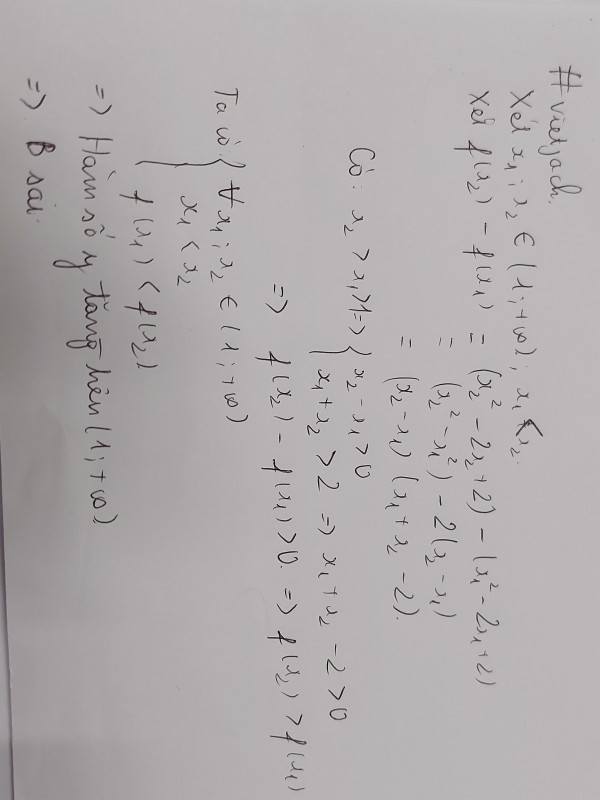 #vietjack.
Xét x₁; x₂ ∈ (1; +∞); x₁ < x₂.
Xét f(x₂) - f(x₁) = (x₂² - 2x₂ + 2) - (x₁² - 2x₁ + 2)
= (x₂² - x₁²) - 2(x₂ - x₁)
= (x₂ - x₁) (x₁ + x₂ - 2).
Có: x₂ > x₁ > 1 => { x₂ - x₁ > 0
x₁ + x₂ > 2 => x₁ + x₂ - 2 > 0
=> f(x₂) - f(x₁) > 0. => f(x₂) > f(x₁)
Ta có { ∀ x₁; x₂ ∈ (1; +∞)
x₁ < x₂
f(x₁) < f(x₂)
=> Hàm số y tăng trên (1; +∞)
=> B sai.